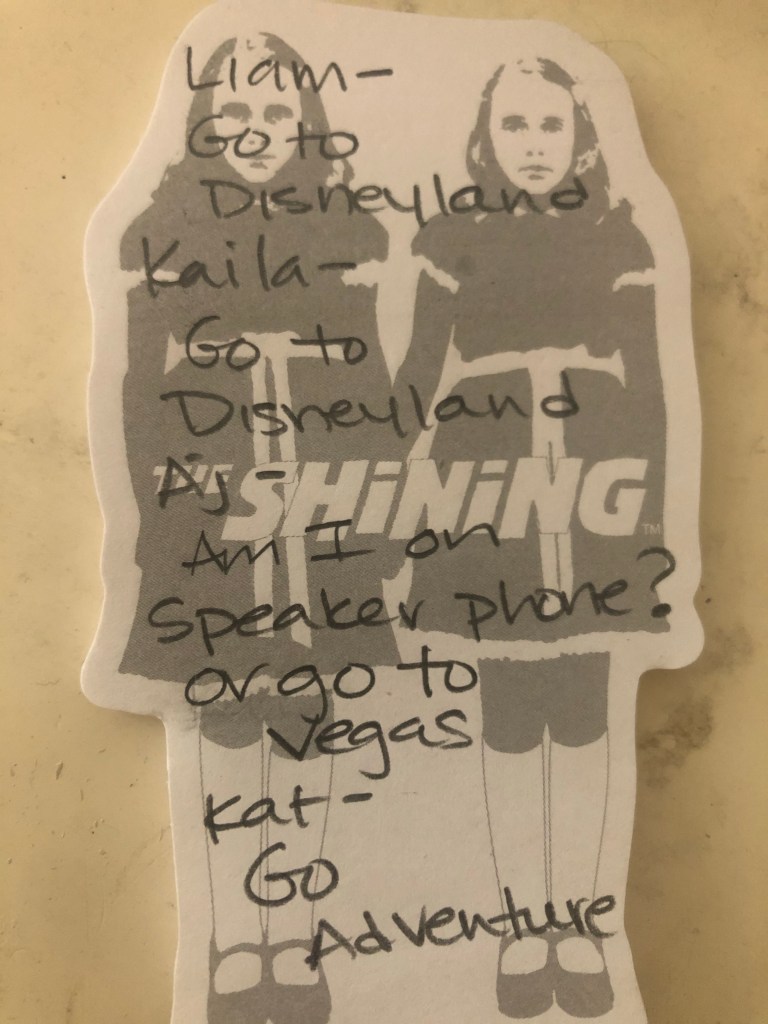 Liam-
Go to
Disneyland
Kaila-
Go to
Disneyland
Aj-
THE SHiNiNG™
Am I on
speaker phone?
or go to
vegas
Kat-
Go
Adventure